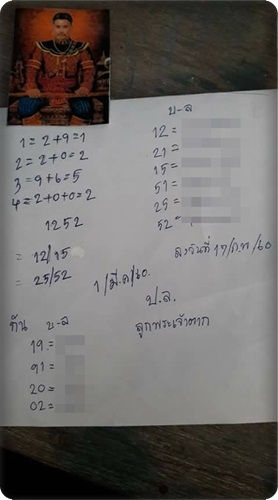 บ-ล
1 = 2+9=1
2 = 2+0=2
3 = 9+6=5
4 = 2+0+0=2
1252
= 12/15
= 25/52
12 =
21 =
15 =
51 =
25 =
52 =
ลงวันที่ 17/ก.พ/60
1/มี.ค/60.
ป.ล.
ลูกพระเจ้าตาก
กัน บ-ล
19 =
91 =
20 =
02 =